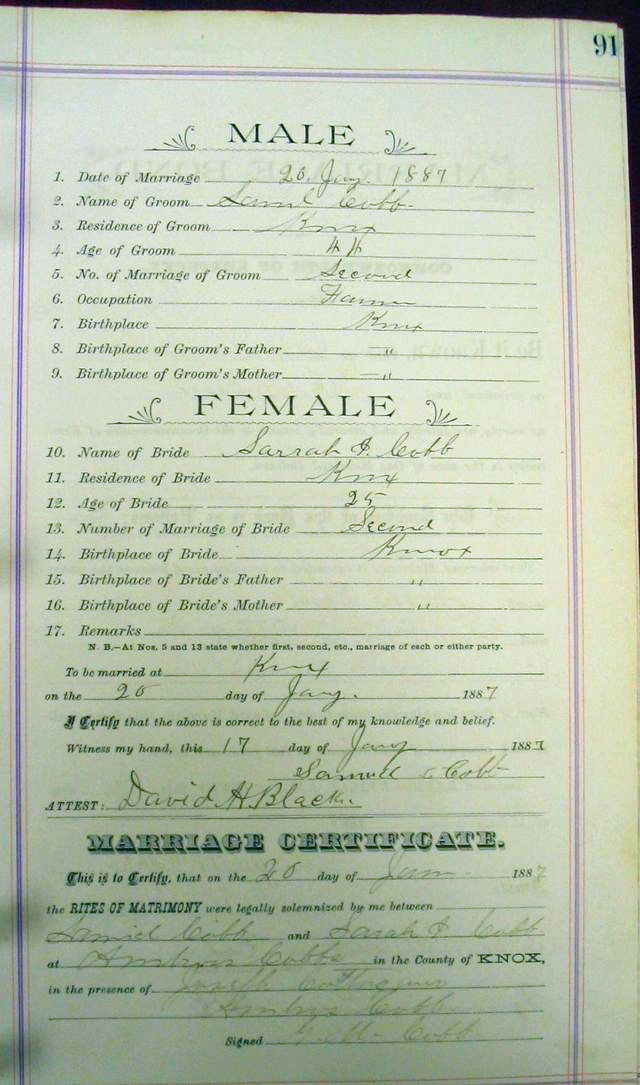 91
MALE
1. Date of Marriage 20 Jany. 1887
2. Name of Groom Saml Cobb
3. Residence of Groom Knx
4. Age of Groom 44
5. No. of Marriage of Groom Second
6. Occupation Farmer
7. Birthplace Knx
8. Birthplace of Groom's Father "
9. Birthplace of Groom's Mother "
FEMALE
10. Name of Bride Sarrah J. Cobb
11. Residence of Bride Knx
12. Age of Bride 25
13. Number of Marriage of Bride Second
14. Birthplace of Bride Knox
15. Birthplace of Bride's Father "
16. Birthplace of Bride's Mother "
17. Remarks
N. B.—At Nos. 5 and 13 state whether first, second, etc., marriage of each or either party.
To be married at Knx
on the 20 day of Jany. 1887
I Certify that the above is correct to the best of my knowledge and belief.
Witness my hand, this 17 day of Jany 1887
Samuel Cobb
ATTEST: David H Black
MARRIAGE CERTIFICATE.
This is to Certify, that on the 20 day of Jan. 1887
the RITES OF MATRIMONY were legally solemnized by me between
Samuel Cobb and Sarah J Cobb
at Cobbs in the County of KNOX,
in the presence of Joseph
Cobb
Signed Cobb